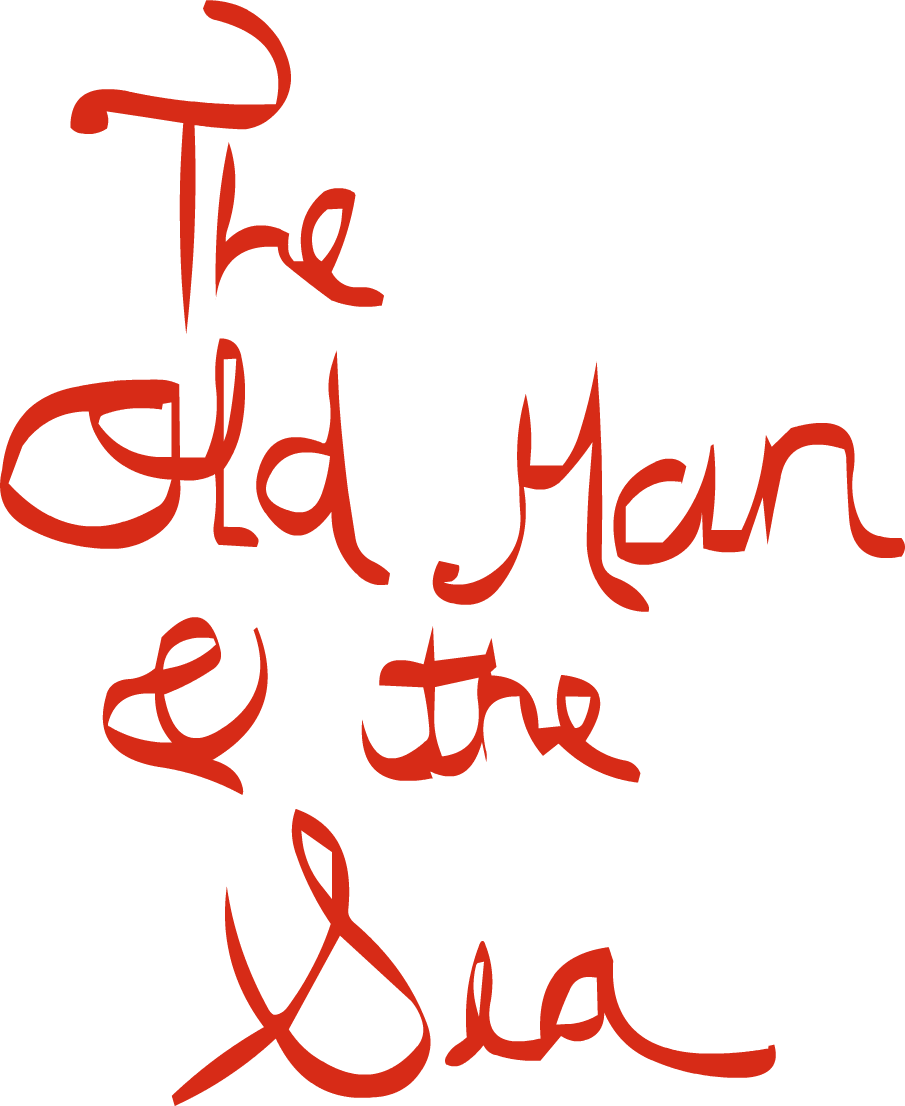 The
Old Man
& the
Sea